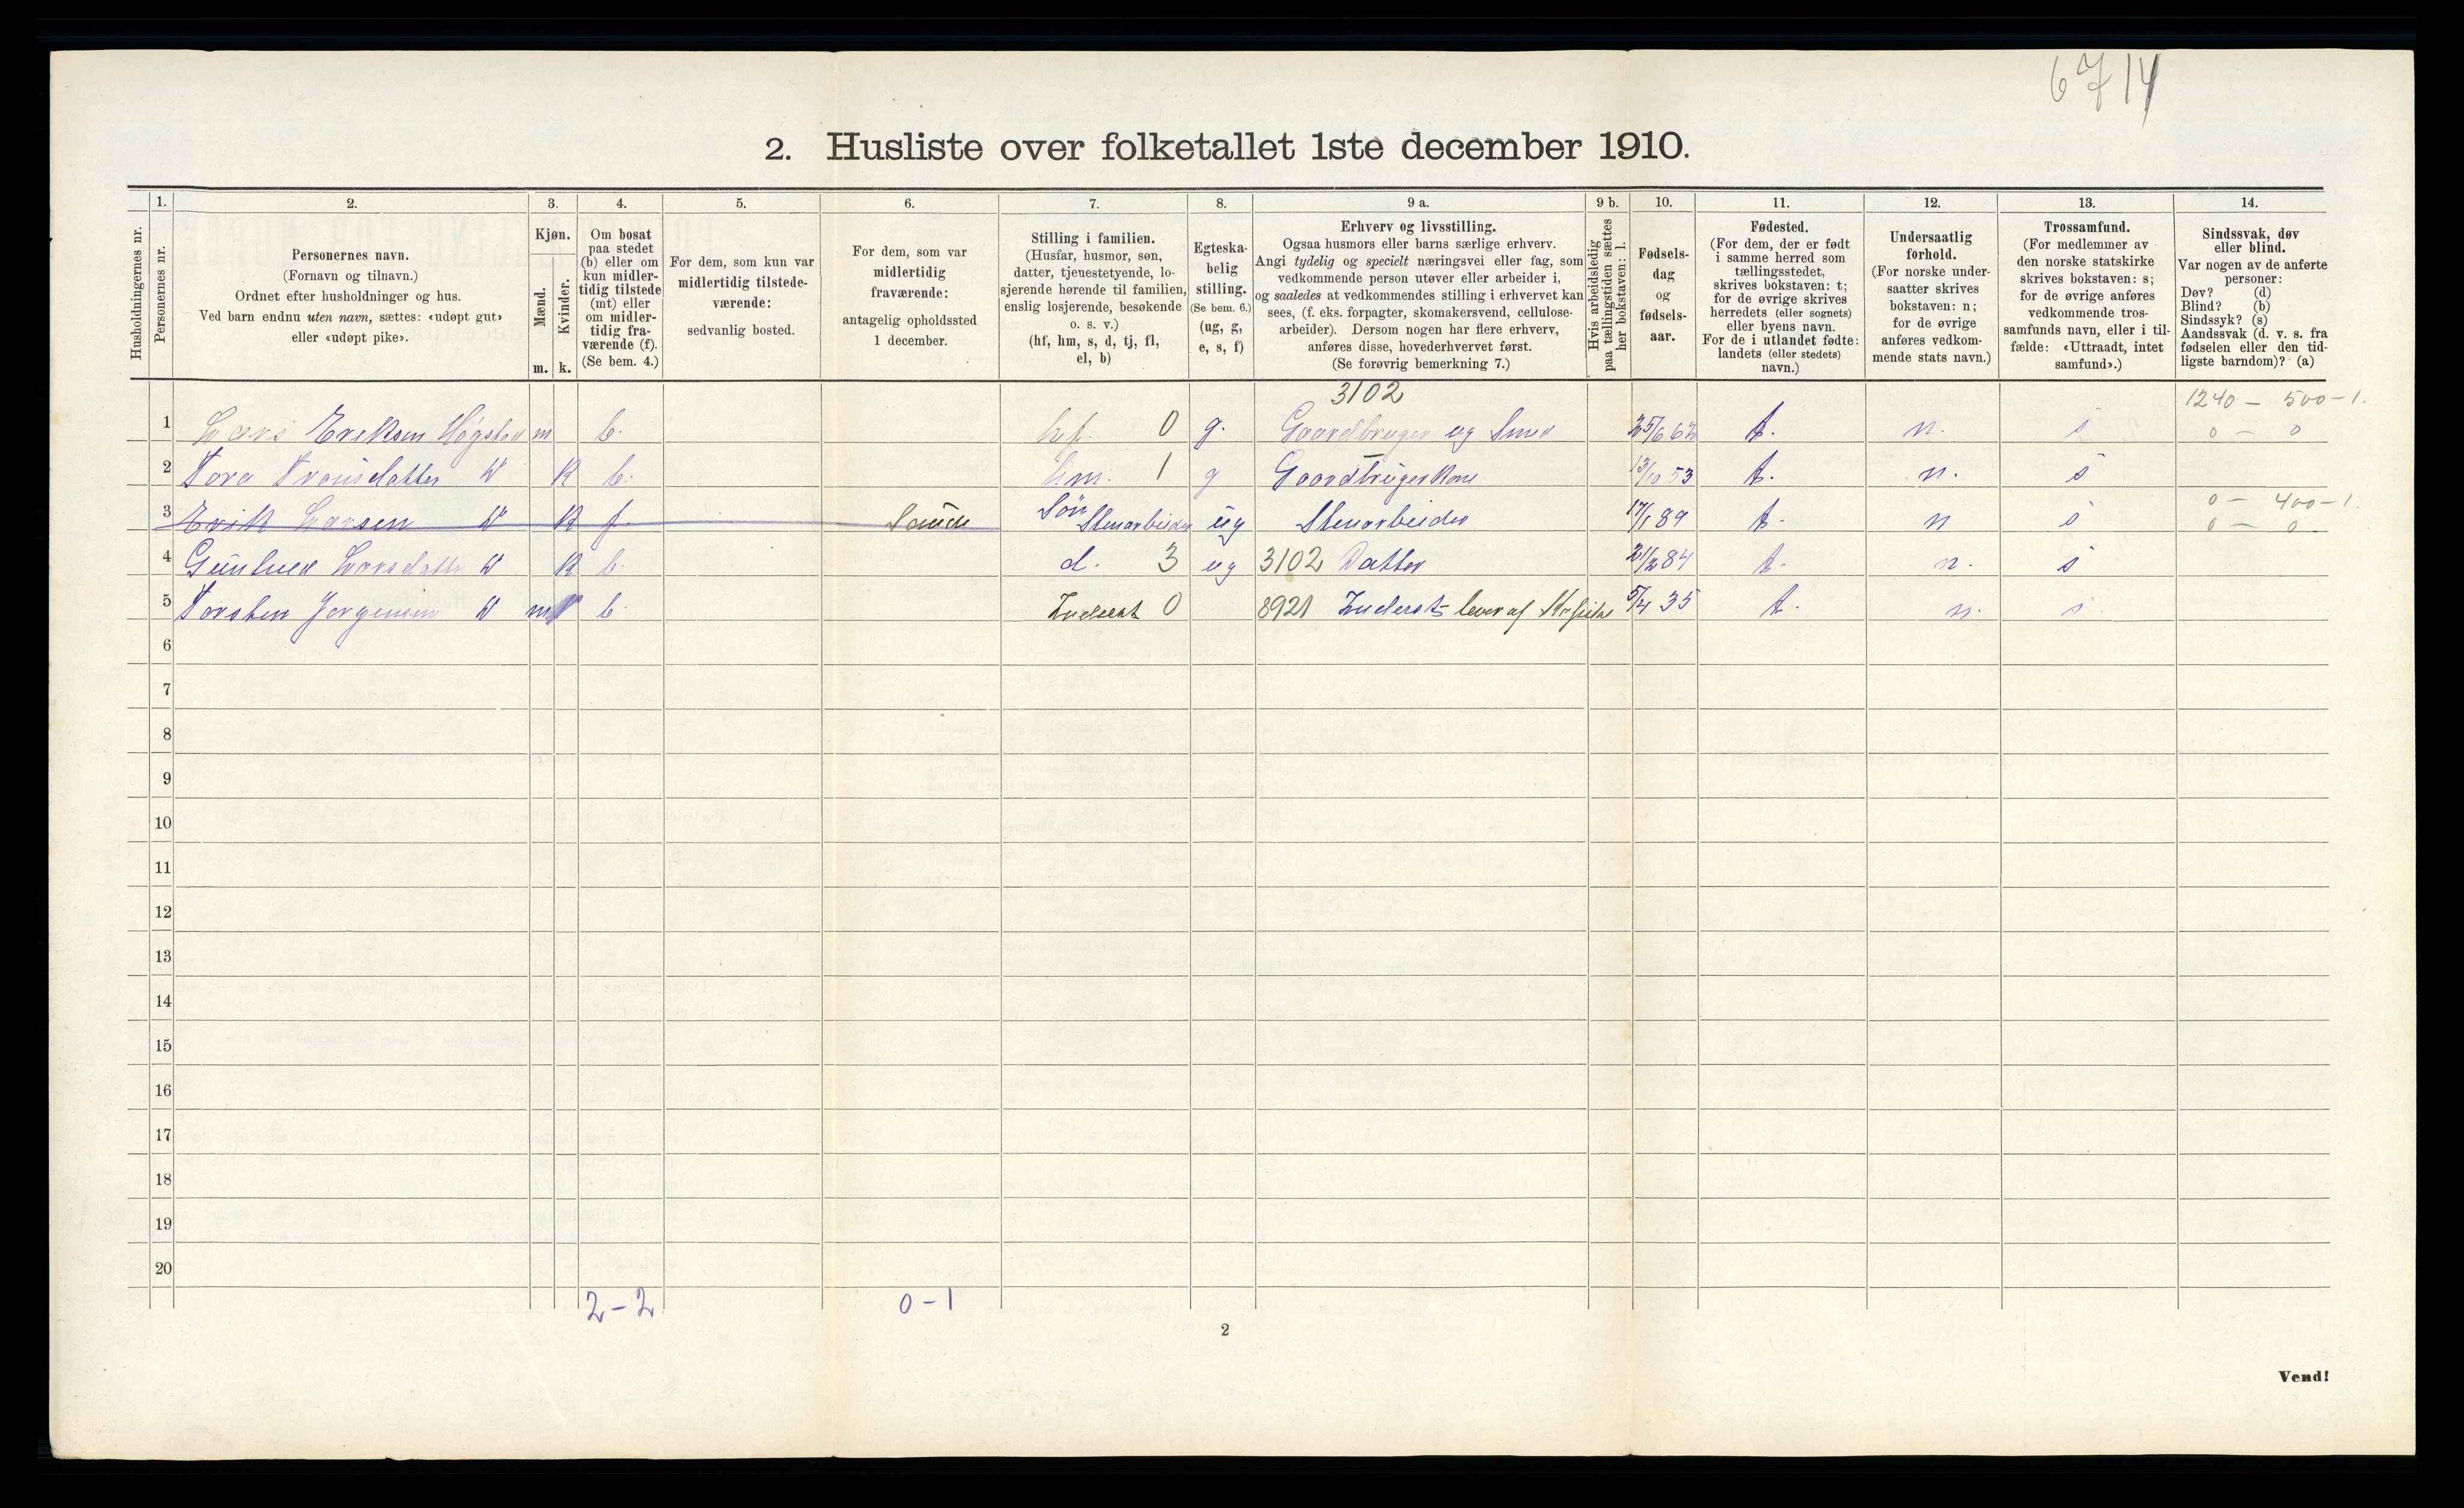 6714
2. Husliste over folketallet 1ste december 1910.
Husholdningernes nr.
1.
Personernes nr.
2.
Personernes navn.
(Fornavn og tilnavn.)
Ordnet efter husholdninger og hus.
Ved barn endnu uten navn, sættes: «udøpt gut»
eller «udøpt pike».
3.
Kjøn.
Mænd.
Kvinder.
m. k.
4.
Om bosat
paa stedet
(b) eller om
kun midler-
tidig tilstede
(mt) eller
om midler-
tidig fra-
værende (f).
(Se bem. 4.)
5.
For dem, som kun var
midlertidig tilstede-
værende:
sedvanlig bosted.
6.
For dem, som var
midlertidig
fraværende:
antagelig opholdssted
1 december.
7.
Stilling i familien.
(Husfar, husmor, søn,
datter, tjenestetyende, lo-
sjerende hørende til familien,
enslig losjerende, besøkende
o. s. v.)
(hf, hm, s, d, tj, fl,
el, b)
8.
Egteska-
belig
stilling.
(Se bem. 6.)
(ug, g,
e, s, f)
9 a.
Erhverv og livsstilling.
Ogsaa husmors eller barns særlige erhverv.
Angi tydelig og specielt næringsvei eller fag, som
vedkommende person utøver eller arbeider i,
og saaledes at vedkommendes stilling i erhvervet kan
sees, (f. eks. forpagter, skomakersvend, cellulose-
arbeider). Dersom nogen har flere erhverv,
anføres disse, hovederhvervet først.
(Se forøvrig bemerkning 7.)
9 b.
Hvis arbeidsledig
paa tællingstiden sættes
her bokstaven: l.
10.
Fødsels-
dag
og
fødsels-
aar.
11.
Fødested.
(For dem, der er født
i samme herred som
tællingsstedet,
skrives bokstaven: t;
for de øvrige skrives
herredets (eller sognets)
eller byens navn.
For de i utlandet fødte:
landets (eller stedets)
navn.)
12.
Undersaatlig
forhold.
(For norske under-
saatter skrives
bokstaven: n;
for de øvrige
anføres vedkom-
mende stats navn.)
13.
Trossamfund.
(For medlemmer av
den norske statskirke
skrives bokstaven: s;
for de øvrige anføres
vedkommende tros-
samfunds navn, eller i til-
fælde: «Uttraadt, intet
samfund».)
14.
Sindssvak, døv
eller blind.
Var nogen av de anførte
personer:
Døv? (d)
Blind? (b)
Sindssyk? (s)
Aandssvak (d. v. s. fra
fødselen eller den tid-
ligste barndom)? (a)
3102
1240 – 500 – 1.
1 Lars Eriksen m b. hf. 0 g. Gaardbruger og Smed 25/6 62 t. n. s 0 – 0
2 k b. hm. 1 g Gaardbrugerkone 13/10 53 t. n. s
0 – 400 – 1.
3 Erik Larsen k f. Søn Stenarbeider ug Stenarbeider 17/1 89 t. n s 0 – 0
4 k b. d. 3 ug 3102 Datter 84 t. n. s
5 Torsten Jorgensen m b. 0 8921 lever af 5/4 35 t. n. s.
6
7
8
9
10
11
12
13
14
15
16
17
18
19
20
2 – 2 0 – 1
2
Vend!